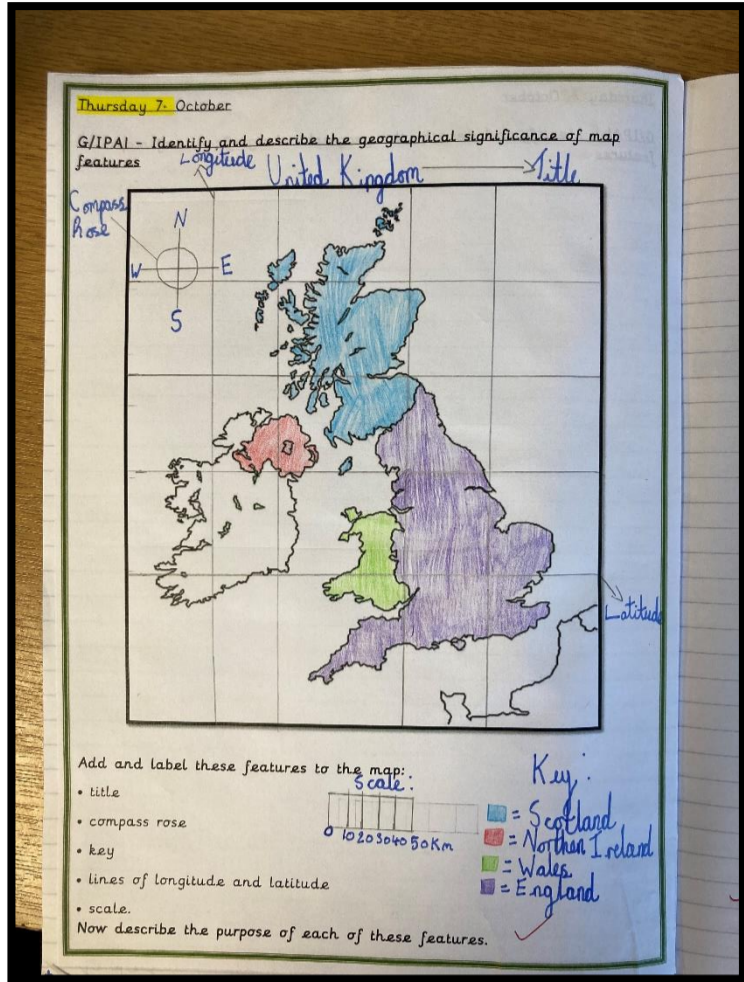 Thursday 7. October
G/IPAI - Identify and describe the geographical significance of map
features
Longitude
United Kingdom
Title
Compass
Rose
N
W
E
S
Latitude
Add and label these features to the map:
• title
• compass rose
• key
• lines of longitude and latitude
• scale.
Now describe the purpose of each of these features.
Scale:
0 10 20 30 40 50 Km
Key:
= Scotland
= Northen Ireland
= Wales
= England